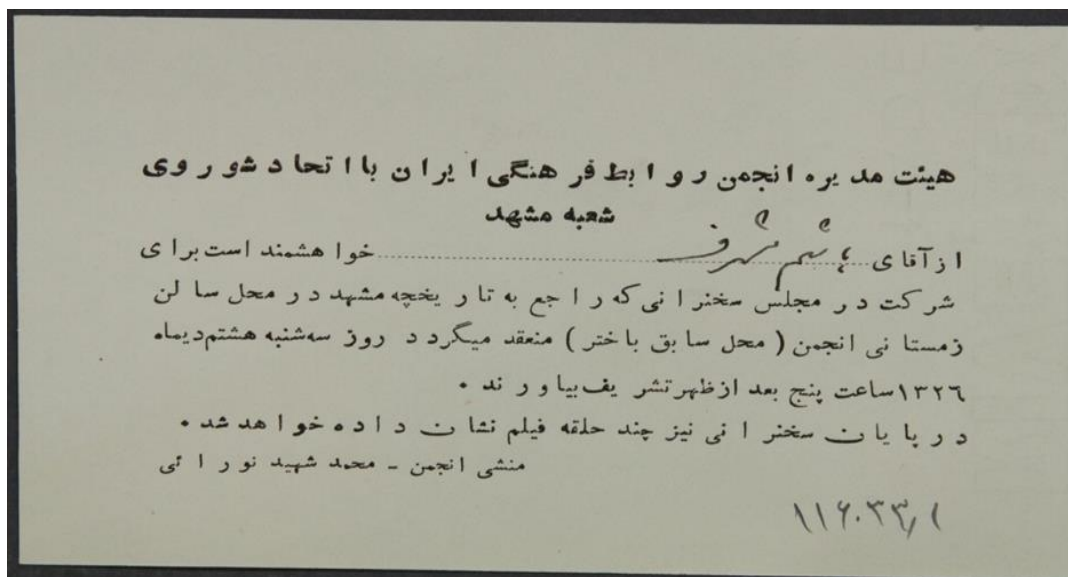 هیئت مدیره انجمن روابط فرهنگی ایران با اتحاد شوروی
شعبه مشهد
از آقای ................ خواهشمند است برای
شرکت در مجلس سخنرانی که راجع به تاریخچه مشهد در محل سالن
زمستانی انجمن ( محل سابق باختر ) منعقد میگردد روز سه‌شنبه هشتم دیماه
۱۳۲۶ ساعت پنج بعد از ظهر تشریف بیاورند .
در پایان سخنرانی نیز چند حلقه فیلم نشان داده خواهد شد .
منشی انجمن - محمد شهید نورائی
۱۱۶۰۳۳/۱